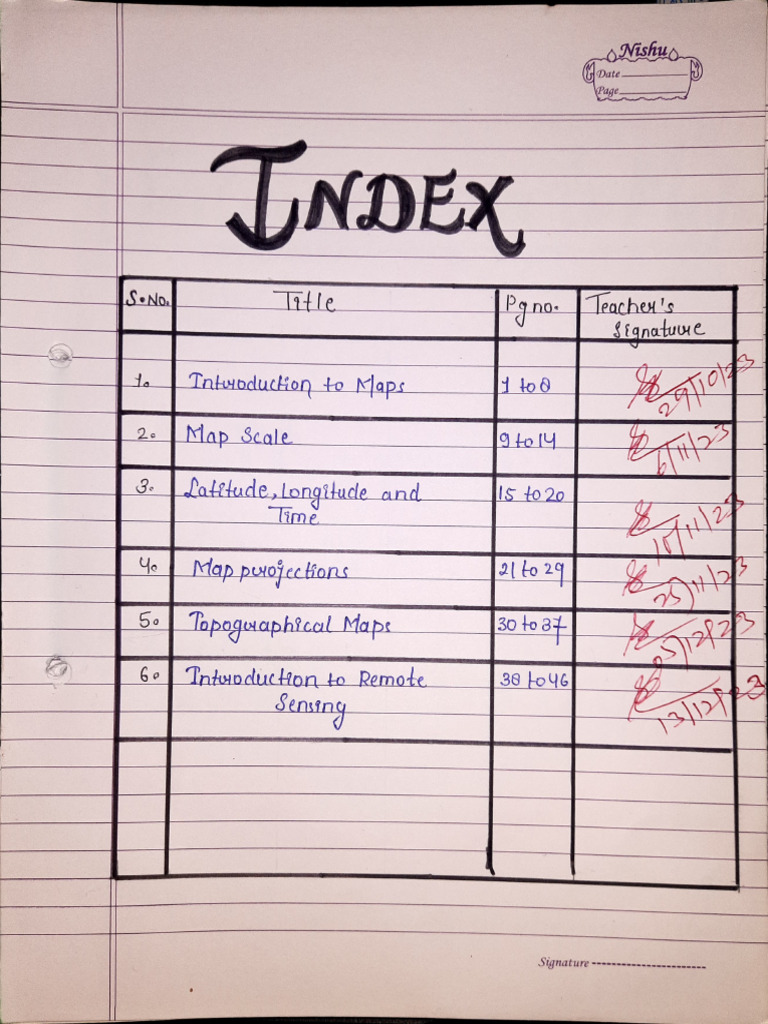 Nishu
Date
Page
INDEX
S.No. Title Pg no. Teacher's Signature
1. Introduction to Maps 1 to 8 29/10/23
2. Map Scale 9 to 14 6/11/23
3. Latitude, Longitude and 15 to 20
Time 18/11/23
4. Map projections 21 to 29 25/11/23
5. Topographical Maps 30 to 37 5/12/23
6. Introduction to Remote 38 to 46
Sensing 13/12/23
Signature